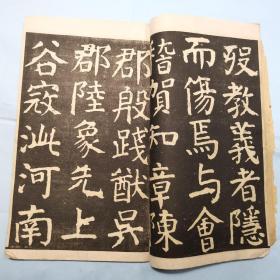 歿教義者隱
而傷焉与會
賀知章陳
郡殷踐猷吳
郡陸象先上
谷寇泚河南